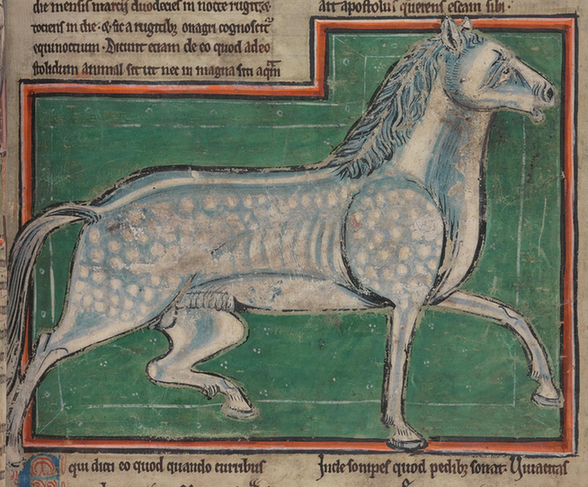 die mensis marcii duodecies in nocte rugit &
tociens in die · & sic a rugitib; onagri cognoscit̃
equinoctium · Dicunt etiam de eo quod adeo
stolidum animal sit ut nec in magna siti aqm̃
ait apostolus querens escam sibi ·
Equi dicti eo quod quando curribus
Inde sonipes quod pedibꝫ sonat.